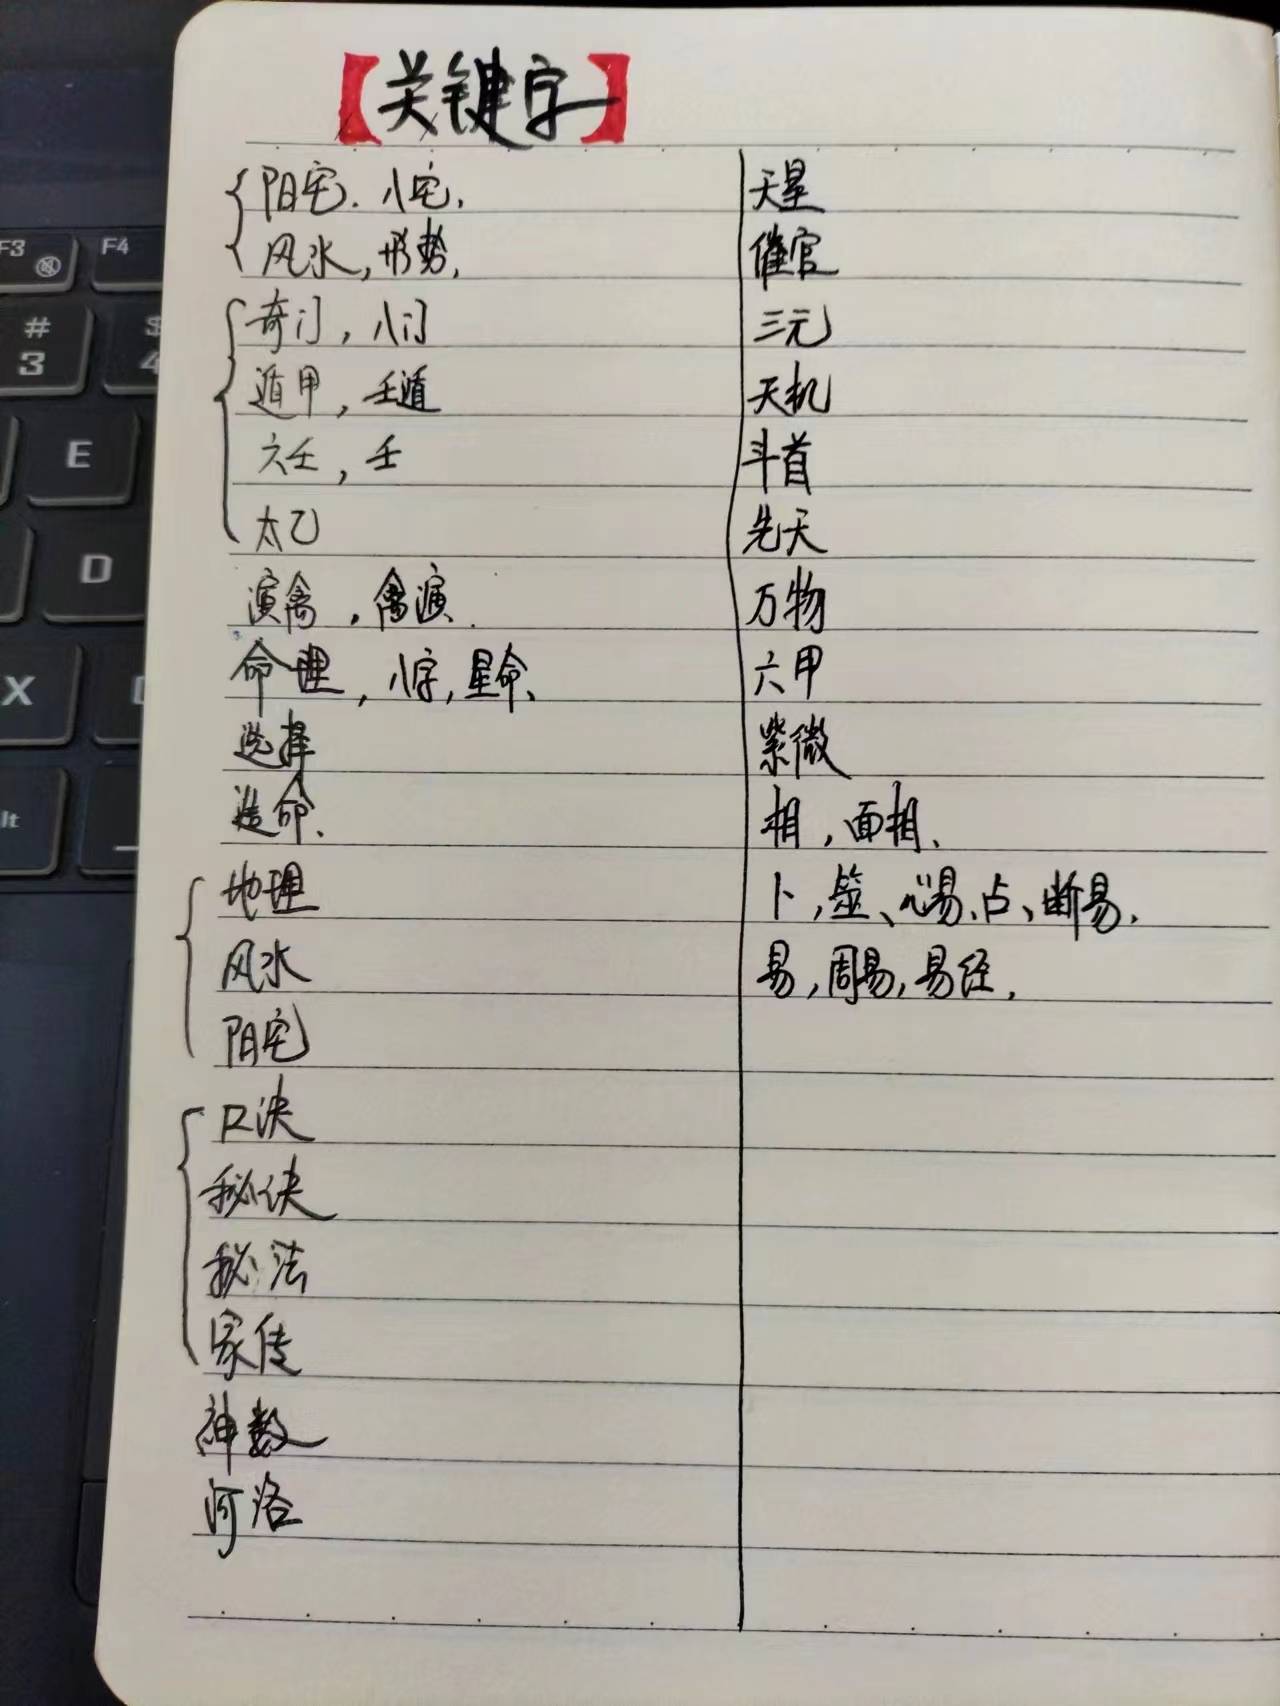 【关键字】
阳宅.八宅,
风水,形势,
奇门,八门
遁甲,壬遁
六壬,壬
太乙
演禽,禽演.
命理,八字,星命、
选择
造命、
地理
风水
阳宅
口诀
秘诀
秘法
家传
神数
河洛
天星
催官
三元
天机
斗首
先天
万物
六甲
紫微
相,面相、
卜,筮、心易、占、断易,
易,周易,易经,
F3
F4
#
3
$
4
E
D
X
lt